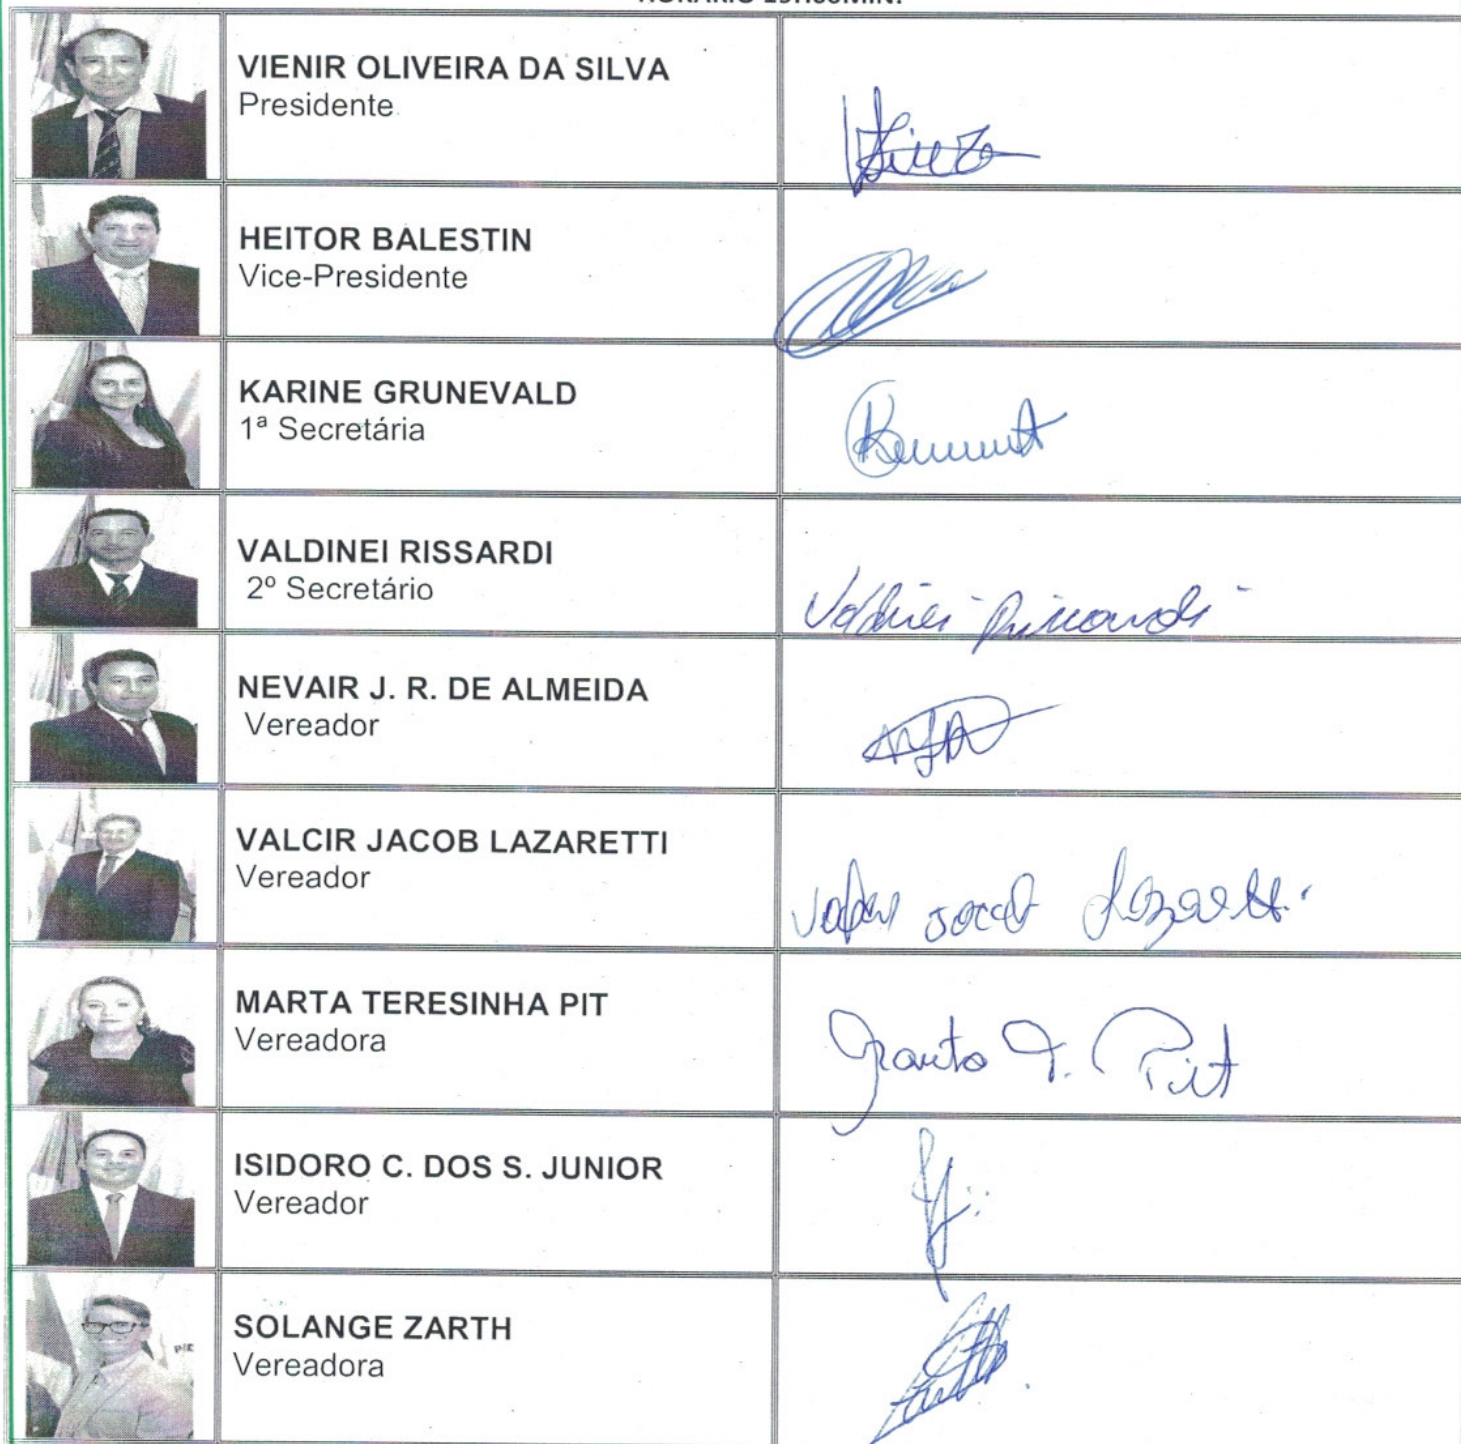 VIENIR OLIVEIRA DA SILVA
Presidente
HEITOR BALESTIN
Vice-Presidente
KARINE GRUNEVALD
1ª Secretária
VALDINEI RISSARDI
2º Secretário
Valdinei Rissardi
NEVAIR J. R. DE ALMEIDA
Vereador
VALCIR JACOB LAZARETTI
Vereador
Valcir Jacob Lazaretti
MARTA TERESINHA PIT
Vereadora
Marta T. Pit
ISIDORO C. DOS S. JUNIOR
Vereador
SOLANGE ZARTH
Vereadora